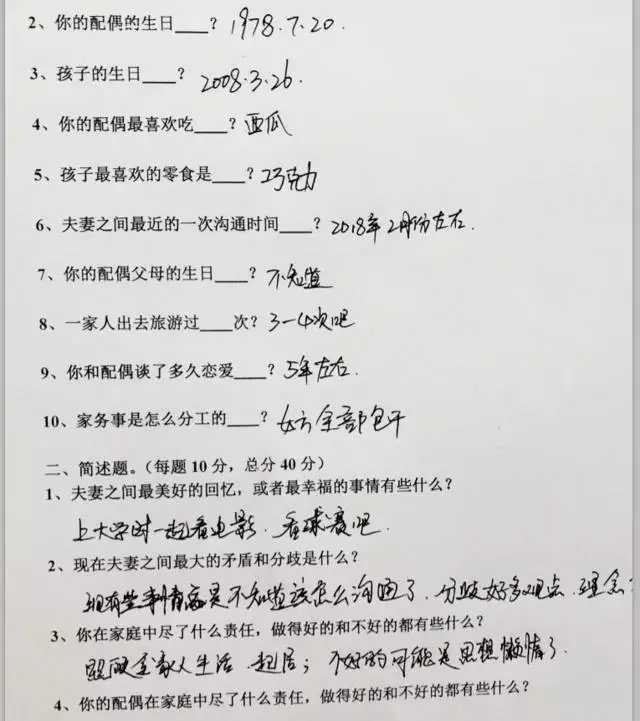 2、你的配偶的生日____？1978.7.20.
3、孩子的生日____？2008.3.26.
4、你的配偶最喜欢吃____？西瓜
5、孩子最喜欢的零食是____？巧克力
6、夫妻之间最近的一次沟通时间____？2018年2月份左右.
7、你的配偶父母的生日____？不知道
8、一家人出去旅游过____次？3-4次吧
9、你和配偶谈了多久恋爱____？5年左右.
10、家务事是怎么分工的____？女方全部包干
二、简述题。（每题10分，总分40分）
1、夫妻之间最美好的回忆，或者最幸福的事情有些什么？
上大学时一起看电影、看球赛吧.
2、现在夫妻之间最大的矛盾和分歧是什么？
现有些事情是不知道该怎么沟通了、分歧好多观点、理念
3、你在家庭中尽了什么责任，做得好的和不好的都有些什么？
照顾全家人生活、起居；不好的可能是思想懒惰了.
4、你的配偶在家庭中尽了什么责任，做得好的和不好的都有些什么？